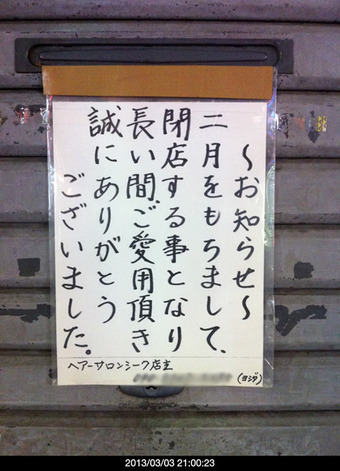 ～お知らせ～
二月をもちまして、
閉店する事となり
長い間ご愛用頂き
誠にありがとう
ございました。
ヘアーサロンシーク店主
(ヨシダ)
2013/03/03 21:00:23